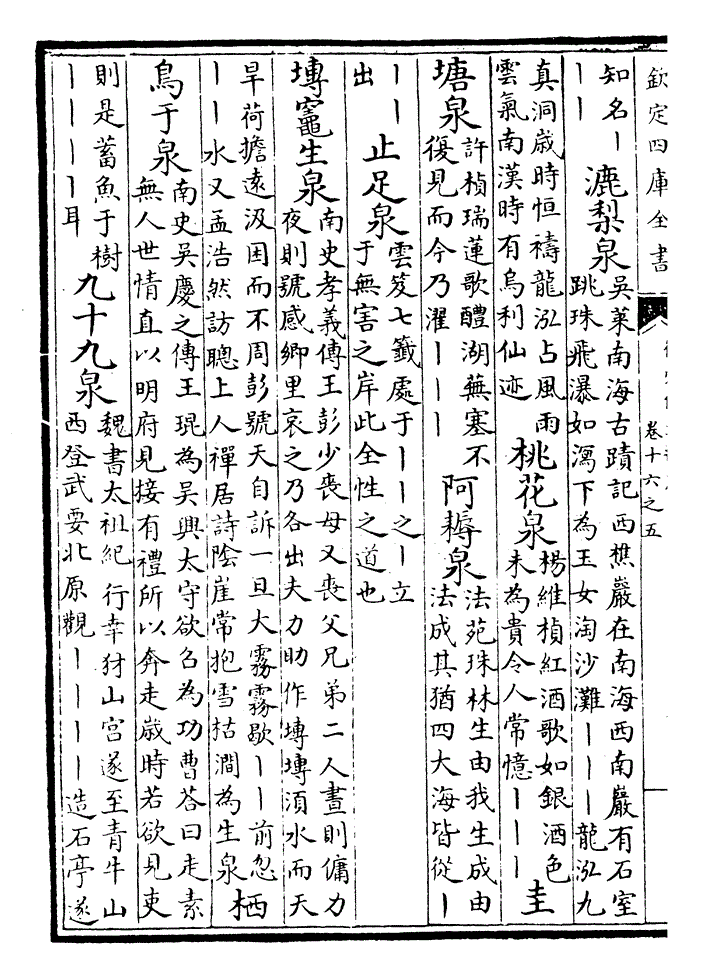 欽定四庫全書
卷十六之五
知名｜
｜｜
漉梨泉
吳萊南海古蹟記西樵巖在南海西南巖有石室
跳珠飛瀑如瀉下為玉女淘沙灘｜｜｜龍泓九
真洞歳時恒禱龍泓占風雨
雲氣南漢時有烏利仙迹
桃花泉
楊維楨紅酒歌如銀酒色
未為貴令人常憶｜｜｜
圭
塘泉
許楨瑞蓮歌醴湖蕪塞不
復見而今乃濯｜｜｜
阿耨泉
法苑珠林生由我生成由
法成其猶四大海皆從｜
｜｜
出
止足泉
雲笈七籤處于｜｜之｜立
于無害之岸此全性之道也
塼竈生泉
南史孝義傳王彭少喪母又喪父兄弟二人晝則傭力
夜則號感鄉里哀之乃各出夫力助作塼塼湏水而天
旱荷擔遠汲困而不周彭號天自訴一旦大霧霧歇｜｜前忽
｜｜水又孟浩然訪聰上人禪居詩陰崖常抱雪枯澗為生泉
栖
鳥于泉
南史吳慶之傳王琨為吳興太守欲召為功曹答曰走素
無人世情直以明府見接有禮所以奔走歳時若欲見吏
則是蓄魚于樹
｜｜｜｜耳
九十九泉
魏書太祖紀行幸犲山宮遂至青牛山
西登武要北原觀｜｜｜｜造石亭遂